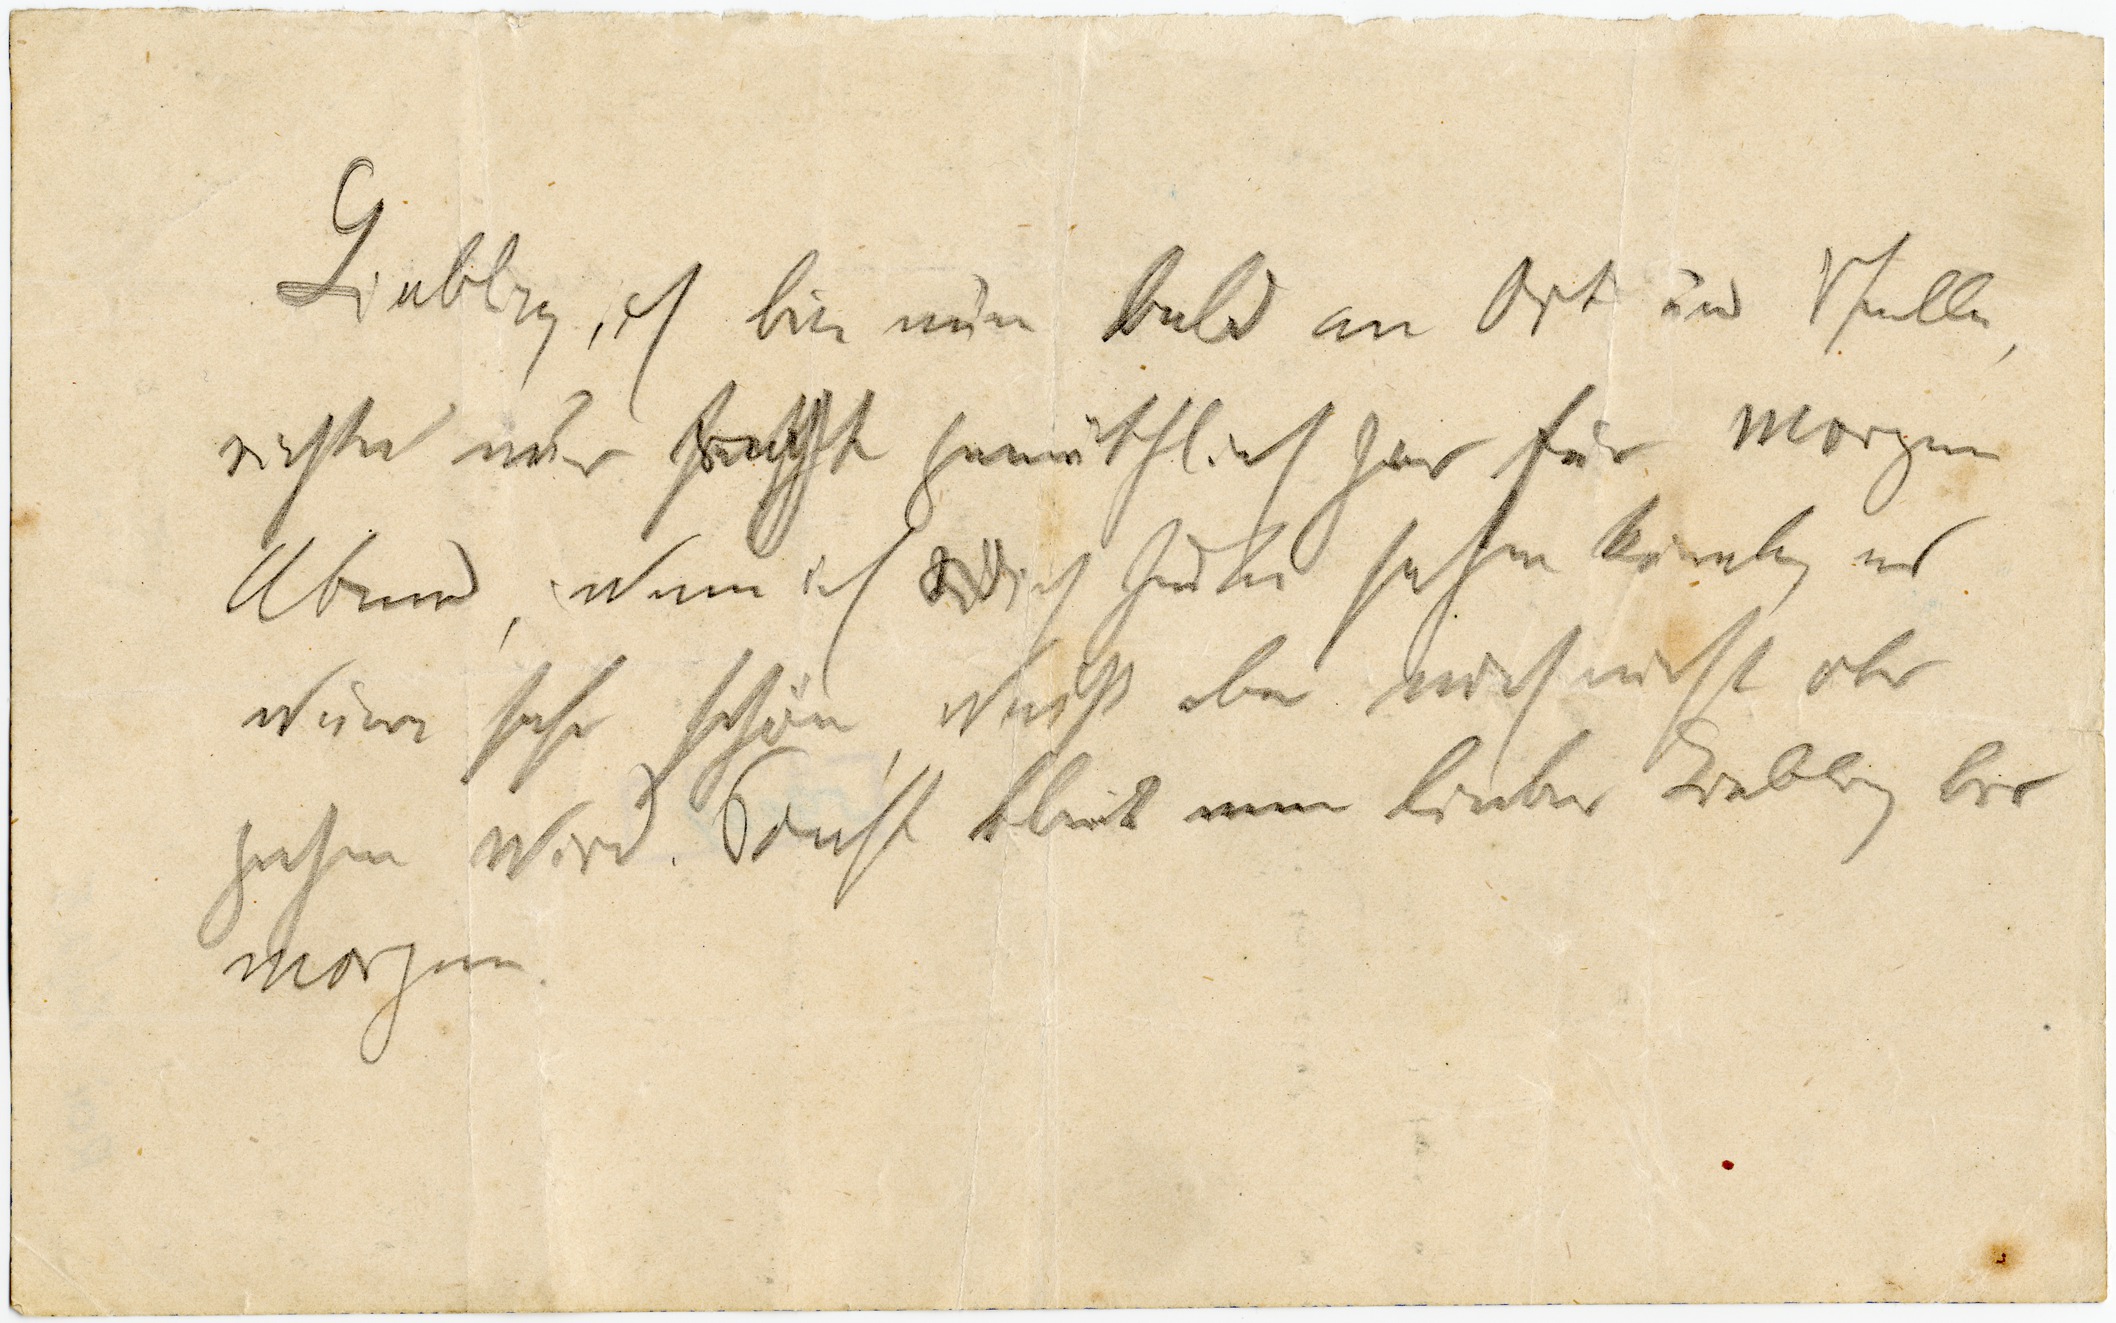 Liebling, ich bin nun bald an Ort und Stelle,
richte nur recht gemüthlich her für Morgen
Abend, wenn ich Dich heute sehen könnte, es
wäre sehr schön, weiß aber noch nicht ob es
gehen wird. Sonst bleib mein lieber Liebling bis
morgen.